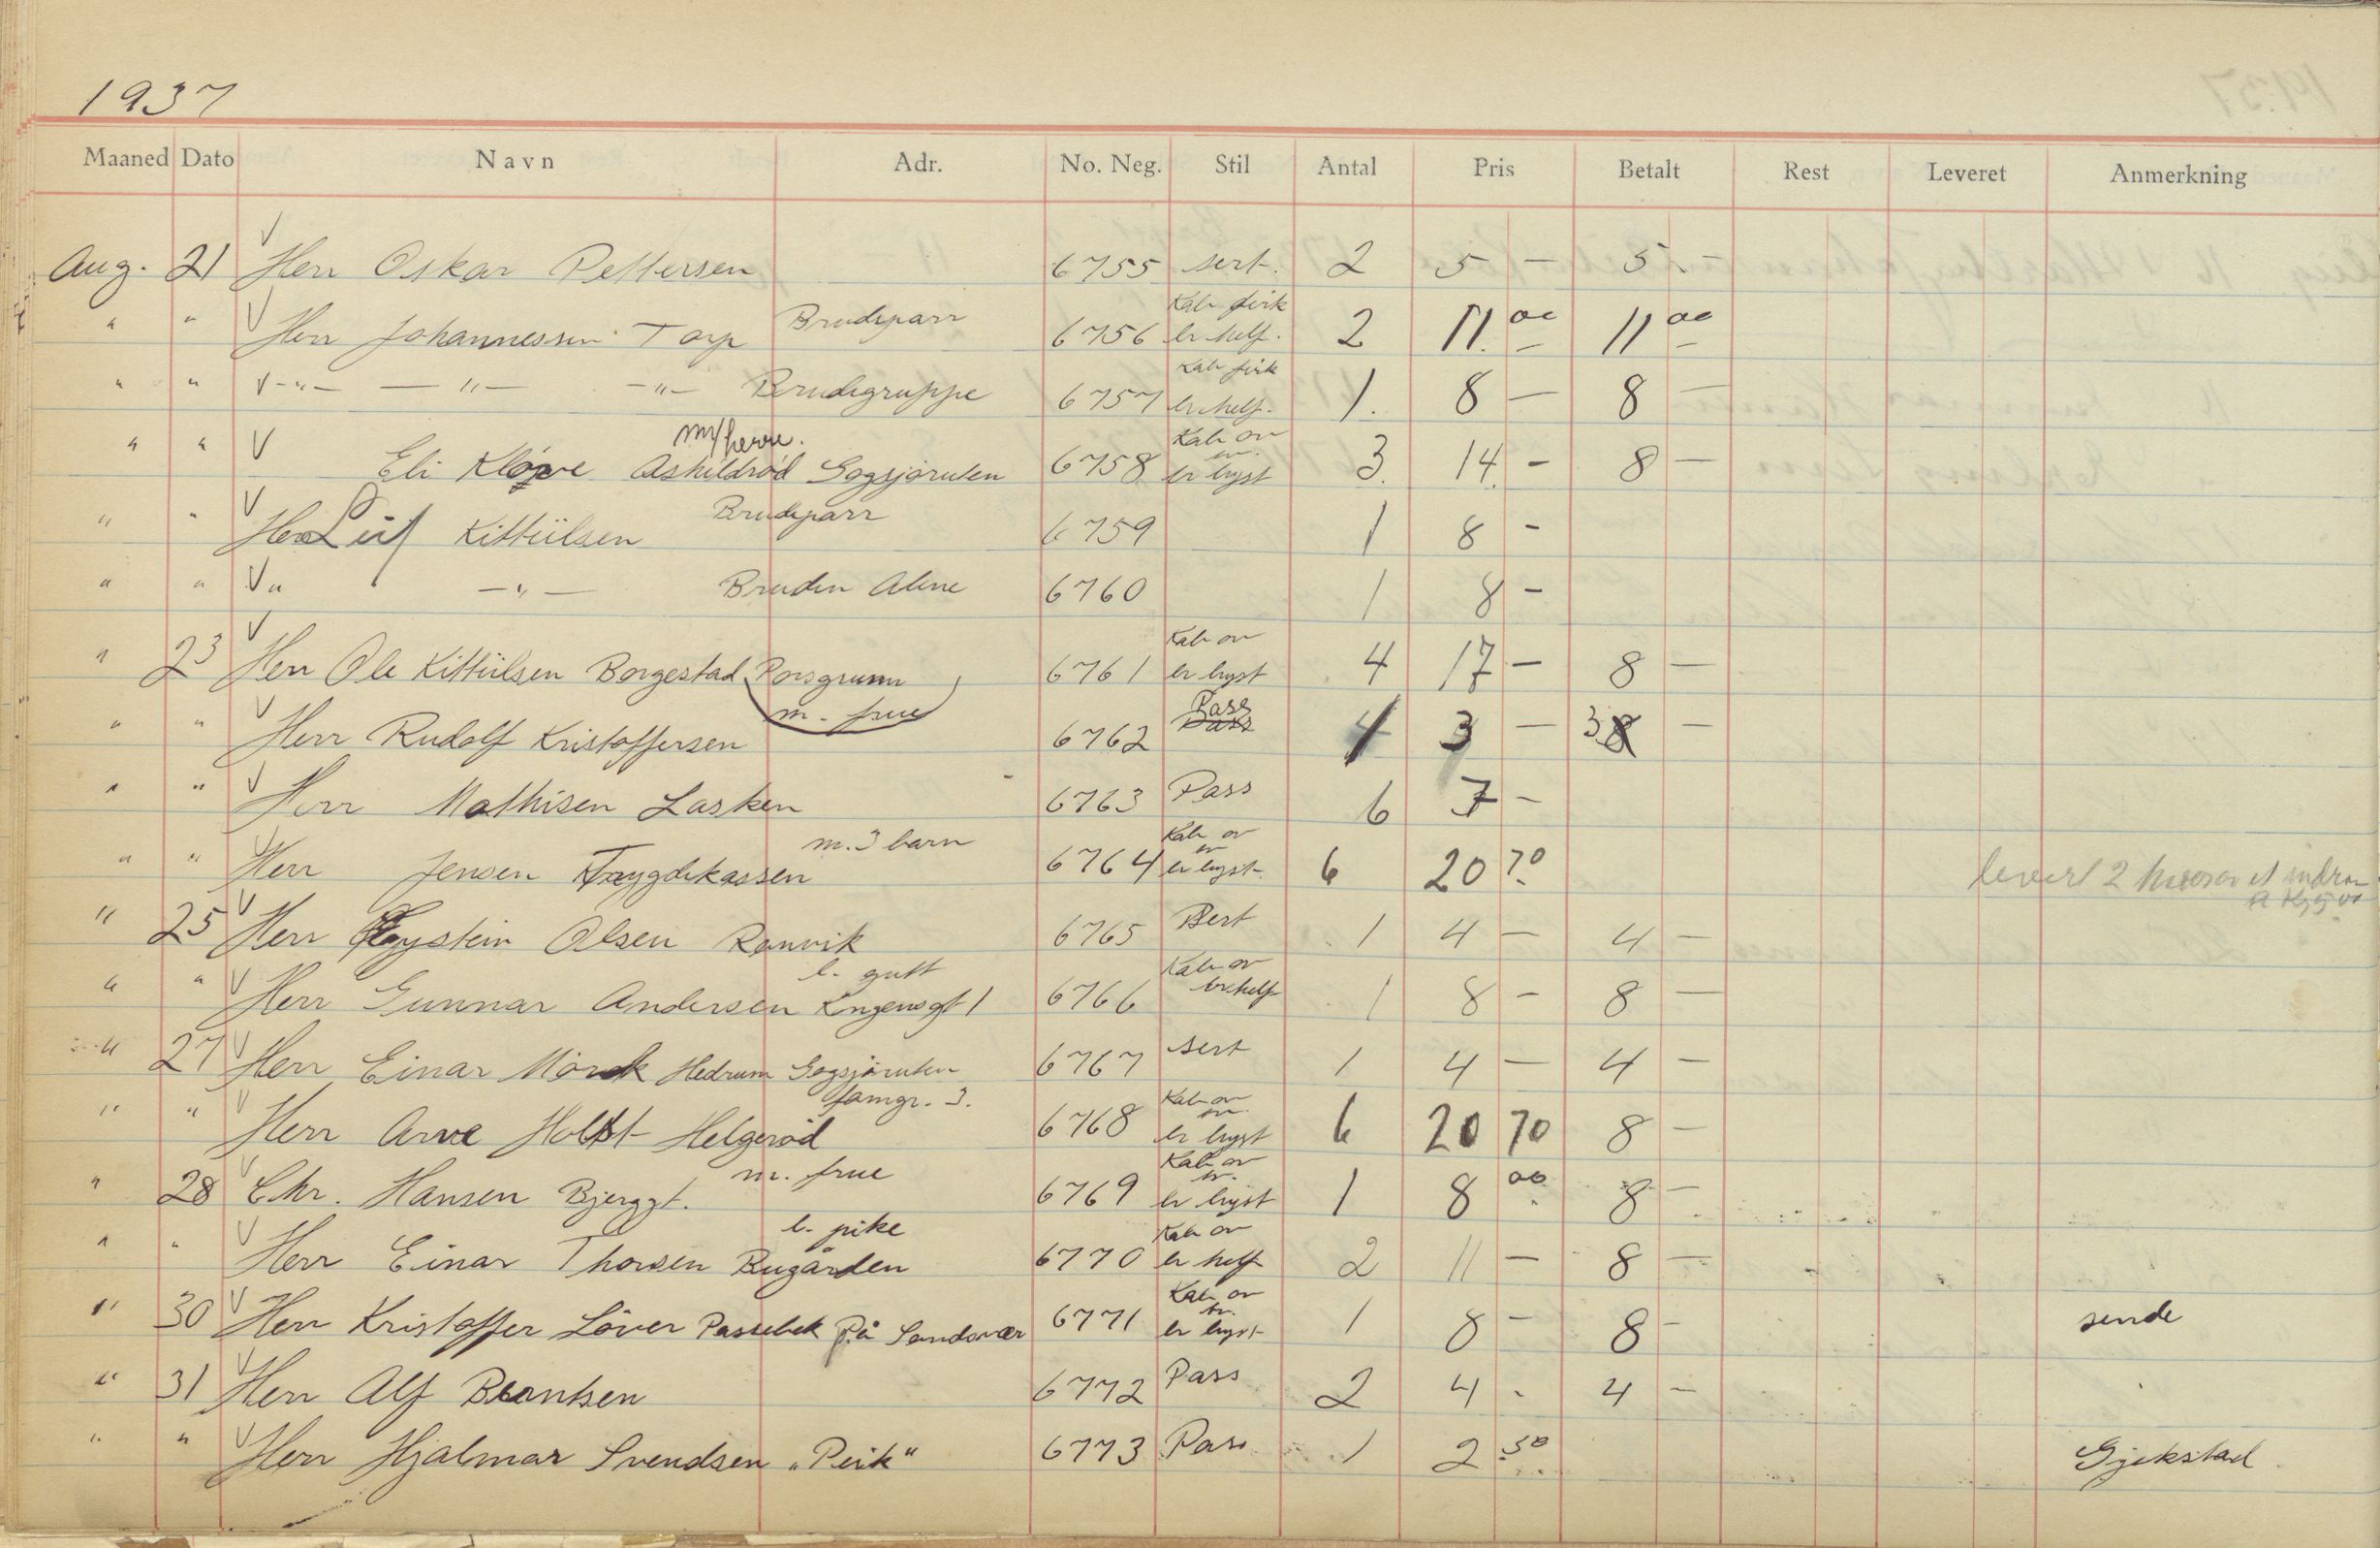 1937
Maaned Dato Navn Adr. No. Neg. Stil Antal Pris Betalt Rest Leveret Anmerkning
Aug. 21 V Herr Oskar Pettersen 6755 sert. 2 5 - 5 -
" " V Herr Johannessen Torp Brudeparr 6756 Kab 2 11.00 11 00
" " V -"- -"- -"- Brudegruppe 6757 Kab 1. 8 - 8 -
m/herre.
" " V Eli Kløve Askildrød Gogsjøruten 6758 Kab br lyst 3. 14. - 8 -
" " V Herr Leif Kittilsen Brudeparr 6759 1 8 -
" " V " -"- Bruden Alene 6760 1 8 -
" 23 V Herr Ole Kittilsen Borgestad Porsgrunn 6761 Kab br lyst 4 17 - 8 -
m. frue
" " V Herr Rudolf Kristoffersen 6762 Pass 1 3 - 3 -
" " V Herr Mathisen Lasken 6763 Pass 6 7 -
m. 3 barn
" " V Herr Jensen Trygdekassen 6764 Kab br lyst 6 20 70 levert 2
" 25 V Herr Øystein Olsen Ranvik 6765 Bert 1 4 - 4 -
l. gutt
" " V Herr Gunnar Andersen Kongensgt 1 6766 Kab br. helf 1 8 - 8 -
" 27 V Herr Einar Mørk Hedrum Gogsjøruten 6767 sert 1 4 - 4 -
famgr. 3.
" " V Herr Arve Holst Helgerød 6768 Kab br lyst 6 20 70 8 -
m. frue
" 28 V Chr. Hansen Bjerggt. 6769 Kab br lyst 1 8 00 8 -
l. pike
" " V Herr Einar Thorsen Bugården 6770 Kab br helf 2 11 - 8 -
" 30 V Herr Kristoffer Løver Passebek Sandsvær 6771 Kab br lyst 1 8 - 8 - sende
" 31 V Herr Alf Berntsen 6772 Pass 2 4 - 4 -
" " V Herr Hjalmar Svendsen „Perik“ 6773 Pass 1 2 50 Gjekstad